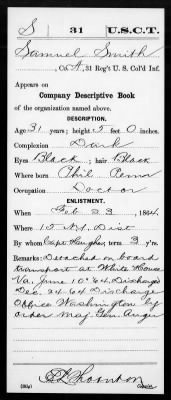 S | 31 | U.S.C.T.
Samuel Smith
, Co. A, 31 Reg't U. S. Col'd Inf.
Appears on
Company Descriptive Book
of the organization named above.
DESCRIPTION.
Age 31 years; height 5 feet 0 inches.
Complexion Dark
Eyes Black, hair Black
Where born Phil. Penna
Occupation Doctor
ENLISTMENT.
When Feb 23, 1864.
Where 15 N.Y. Dist
By whom Capt Hughes; term 3 y'rs.
Remarks: Detached on board
transport at White House
Va. June 10" 64, Discharged
Dec. 24 64 Discharge
Office Washington by
order Maj. Gen. Auger
Thornton
Copyist.